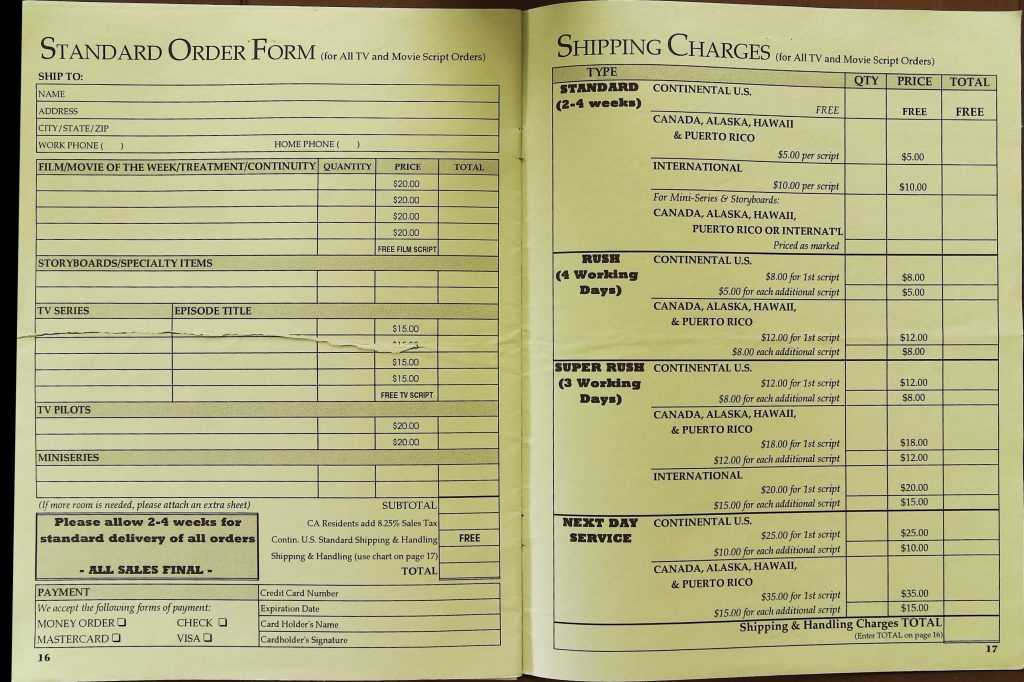 STANDARD ORDER FORM (for All TV and Movie Script Orders)
SHIP TO:
NAME
ADDRESS
CITY/STATE/ZIP
WORK PHONE ( ) HOME PHONE ( )
FILM/MOVIE OF THE WEEK/TREATMENT/CONTINUITY QUANTITY PRICE TOTAL
$20.00
$20.00
$20.00
$20.00
FREE FILM SCRIPT
STORYBOARDS/SPECIALTY ITEMS
TV SERIES EPISODE TITLE
$15.00
$15.00
$15.00
FREE TV SCRIPT
TV PILOTS
$20.00
$20.00
MINISERIES
(If more room is needed, please attach an extra sheet) SUBTOTAL
Please allow 2-4 weeks for
standard delivery of all orders
- ALL SALES FINAL -
CA Residents add 8.25% Sales Tax
Contin. U.S. Standard Shipping & Handling FREE
Shipping & Handling (use chart on page 17)
TOTAL
PAYMENT
We accept the following forms of payment:
MONEY ORDER ❑ CHECK ❑
MASTERCARD ❑ VISA ❑
Credit Card Number
Expiration Date
Card Holder's Name
Cardholder's Signature
16
SHIPPING CHARGES (for All TV and Movie Script Orders)
TYPE QTY PRICE TOTAL
STANDARD
(2-4 weeks)
CONTINENTAL U.S.
FREE FREE FREE
CANADA, ALASKA, HAWAII
& PUERTO RICO
$5.00 per script $5.00
INTERNATIONAL
$10.00 per script $10.00
For Mini-Series & Storyboards:
CANADA, ALASKA, HAWAII,
PUERTO RICO OR INTERNAT'L
Priced as marked
RUSH
(4 Working
Days)
CONTINENTAL U.S.
$8.00 for 1st script $8.00
$5.00 for each additional script $5.00
CANADA, ALASKA, HAWAII,
& PUERTO RICO
$12.00 for 1st script $12.00
$8.00 each additional script $8.00
SUPER RUSH
(3 Working
Days)
CONTINENTAL U.S.
$12.00 for 1st script $12.00
$8.00 for each additional script $8.00
CANADA, ALASKA, HAWAII,
& PUERTO RICO
$18.00 for 1st script $18.00
$12.00 for each additional script $12.00
INTERNATIONAL
$20.00 for 1st script $20.00
$15.00 for each additional script $15.00
NEXT DAY
SERVICE
CONTINENTAL U.S.
$25.00 for 1st script $25.00
$10.00 for each additional script $10.00
CANADA, ALASKA, HAWAII,
& PUERTO RICO
$35.00 for 1st script $35.00
$15.00 for each additional script $15.00
Shipping & Handling Charges TOTAL
(Enter TOTAL on page 16)
17